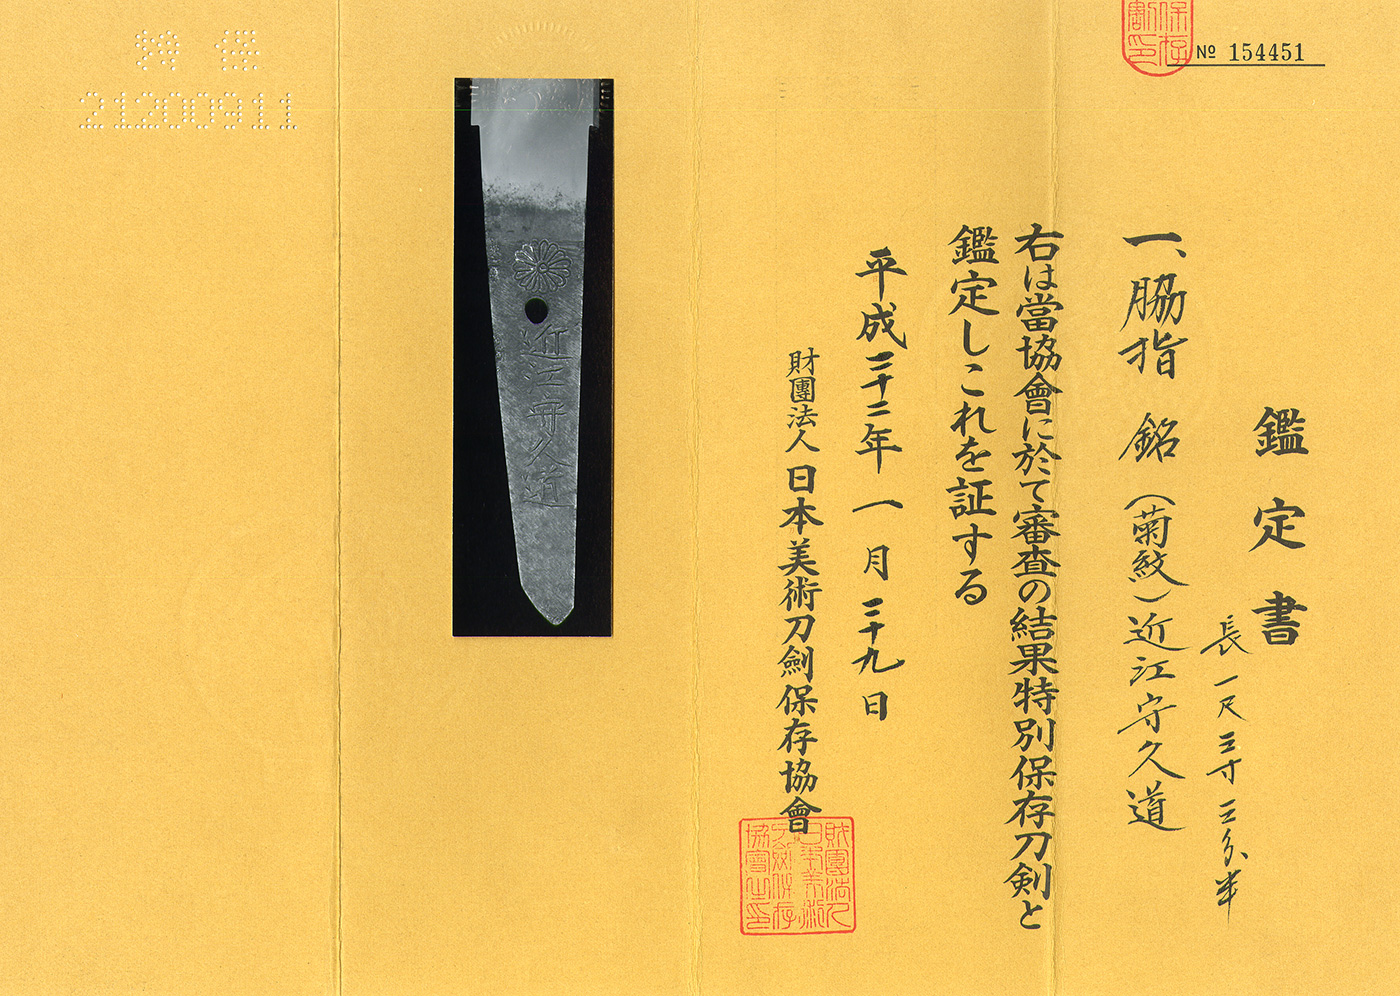 保存
割印
№ 154451
鑑定書
長一尺三寸三分半
一、脇指 銘(菊紋)近江守久道
右は當協會に於て審査の結果特別保存刀剣と
鑑定しこれを証する
平成二十二年一月二十九日
財團法人日本美術刀劍保存協會
財團法人
日本美術
刀劍保存
協會之印
近江守久道
特保
21200911